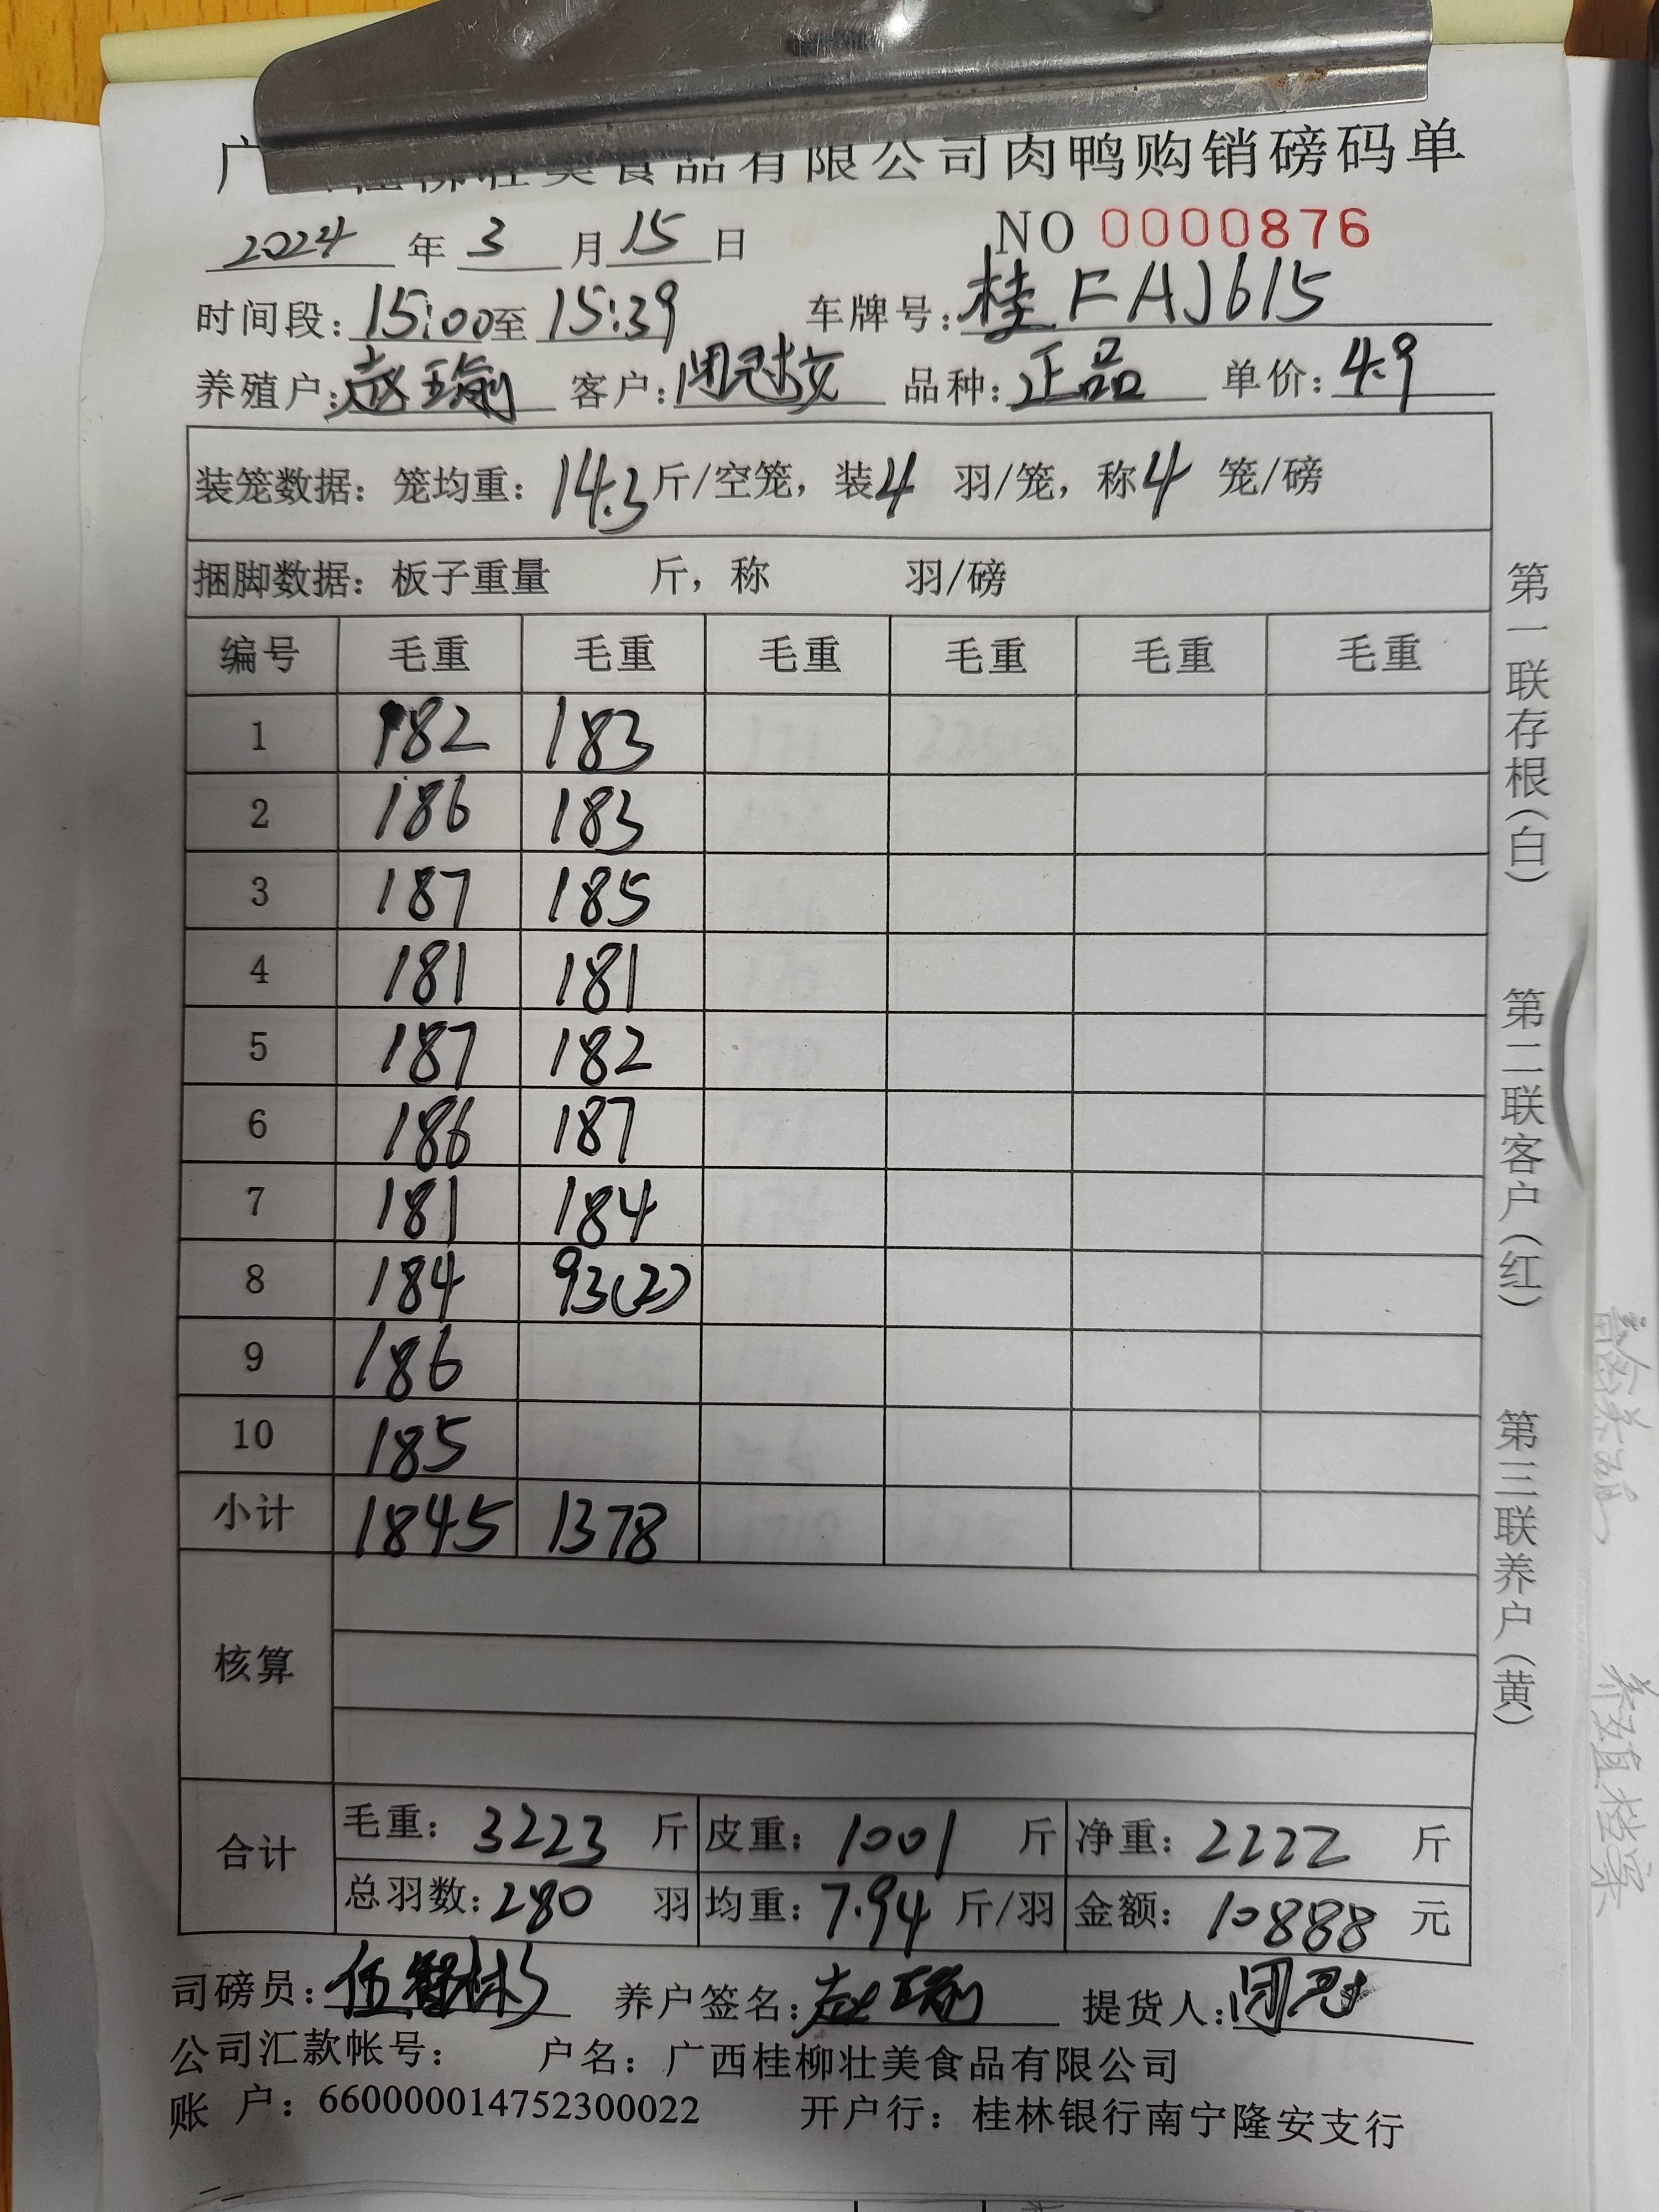 广 桂柳壮美食品有限公司肉鸭购销磅码单
2024 年 3 月 15 日 NO 0000876
时间段: 15:00 至 15:39 车牌号: 桂FAJ615
养殖户: 赵瑜 客户: 闭 品种: 正品 单价: 4.9
装笼数据: 笼均重: 14.3 斤/空笼, 装 4 羽/笼, 称 4 笼/磅
捆脚数据: 板子重量 斤, 称 羽/磅
编号 毛重 毛重 毛重 毛重 毛重 毛重
1 182 183
2 186 183
3 187 185
4 181 181
5 187 182
6 186 187
7 181 184
8 184 93(2)
9 186
10 185
小计 1845 1378
核算
合计
毛重: 3223 斤 皮重: 1001 斤 净重: 2222 斤
总羽数: 280 羽 均重: 7.94 斤/羽 金额: 10888 元
司磅员: 伍智彬 养户签名: 赵瑜 提货人: 闭
公司汇款帐号: 户名: 广西桂柳壮美食品有限公司
账 户: 660000014752300022 开户行: 桂林银行南宁隆安支行
第一联存根(白)
第二联客户(红)
第三联养户(黄)